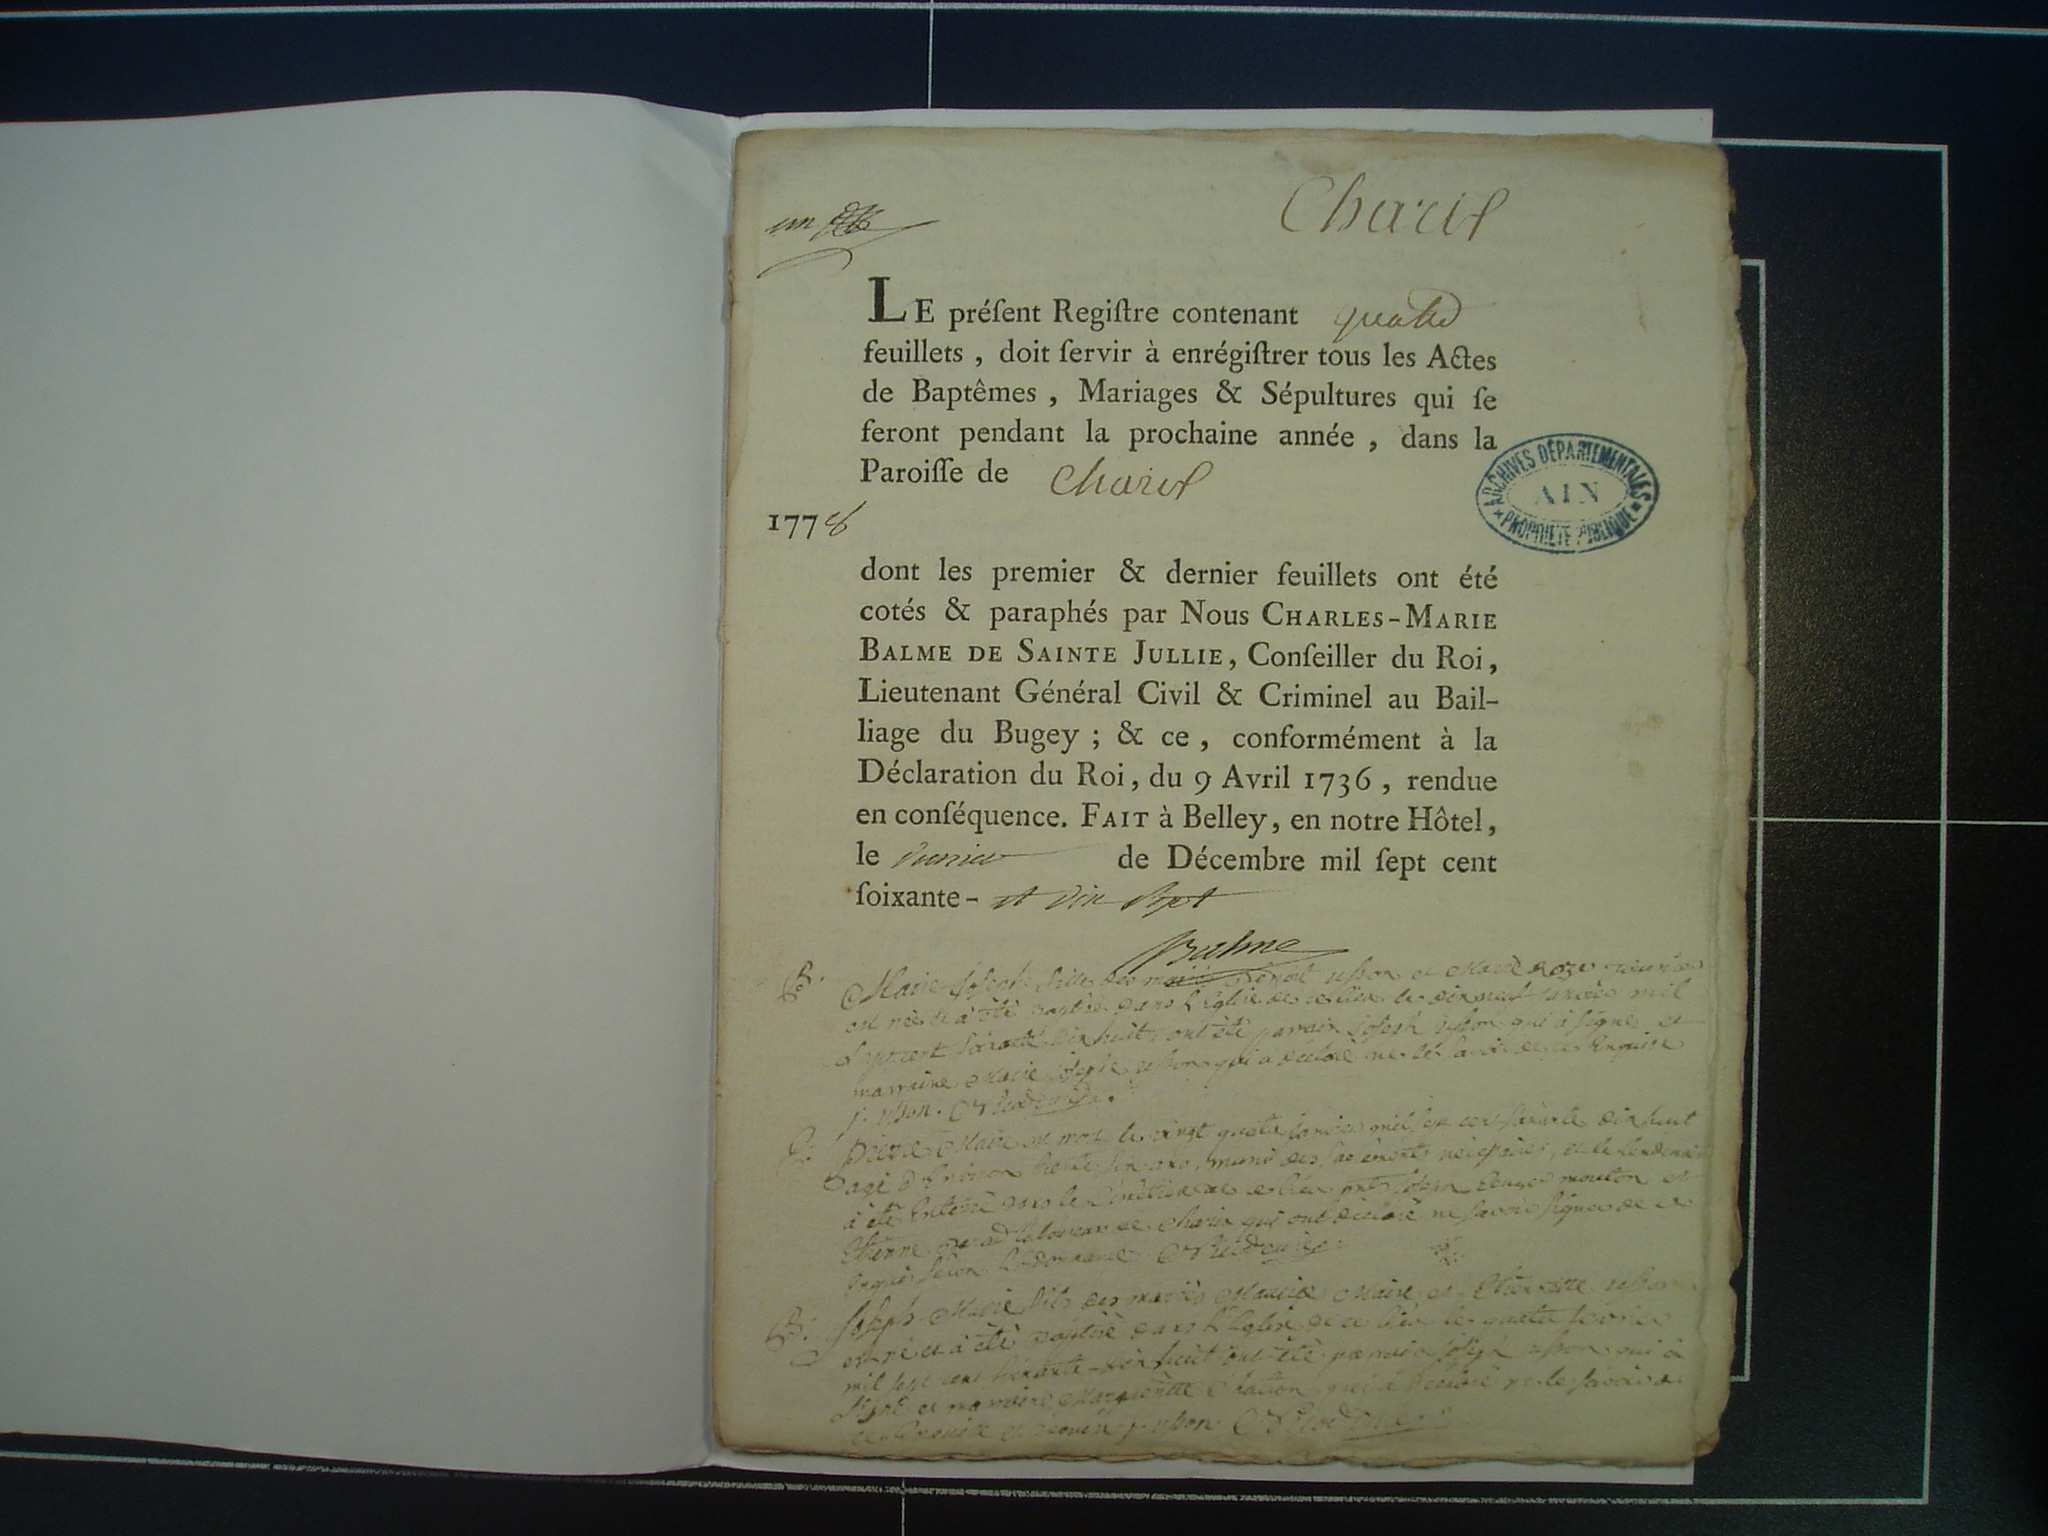 Charix
un
LE préſent Regiſtre contenant quatre
feuillets, doit ſervir à enrégiſtrer tous les Actes
de Baptêmes, Mariages & Sépultures qui ſe
feront pendant la prochaine année, dans la
Paroiſſe de Charix
ARCHIVES DÉPARTEMENTALES
AIN
PROPRIÉTÉ PUBLIQUE
1778
dont les premier & dernier feuillets ont été
cotés & paraphés par Nous CHARLES-MARIE
BALME DE SAINTE JULLIE, Conſeiller du Roi,
Lieutenant Général Civil & Criminel au Bail-
liage du Bugey ; & ce, conformément à la
Déclaration du Roi, du 9 Avril 1736, rendue
en conſéquence. FAIT à Belley, en notre Hôtel,
le de Décembre mil ſept cent
ſoixante- et dix sept
Balme
B. Marie Joseph fille des Benoit et Marie Roze
est née et à été dans l'Eglise de ce lieu le dix neuf janvier mil
sept cent soixante dix huit ont été parrain joseph qui à signé et
marraine Marie josephe qui a déclaré ne le savoir de ce Enquise
S. Pierre Maire est mort le vingt quatre janvier mil sept cent soixante dix huit
agé d'Environ trente six ans, muni des sacements necessaires, et le lendemain
à été Enterré dans le Cimetiere de ce lieu mouton et
Etienne de Charix qui ont déclaré ne savoir signer de ce
Enquis selon l'ordonnance
B. Joseph Marie fils des mariés Maurice Maire et
est né et à été dans l'Eglise de ce lieu le quatre février
mil sept cent soixante-dix huit ont été parrain joseph qui à
signé et marraine Marguerite qui à déclaré ne le savoir